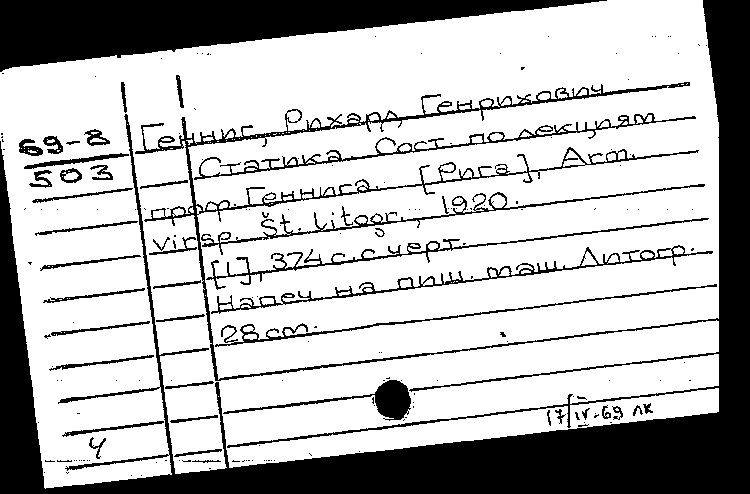 69-8
503
Генниг, Рихард Генрихович
Статика. Сост. по лекциям
проф. Геннига. [Рига], Arm.
virsp. Št. litogr., 1920.
[1], 374 с. с черт.
Напеч. на пиш. маш. Литогр.
28 cm.
4
17/IV-69 лк